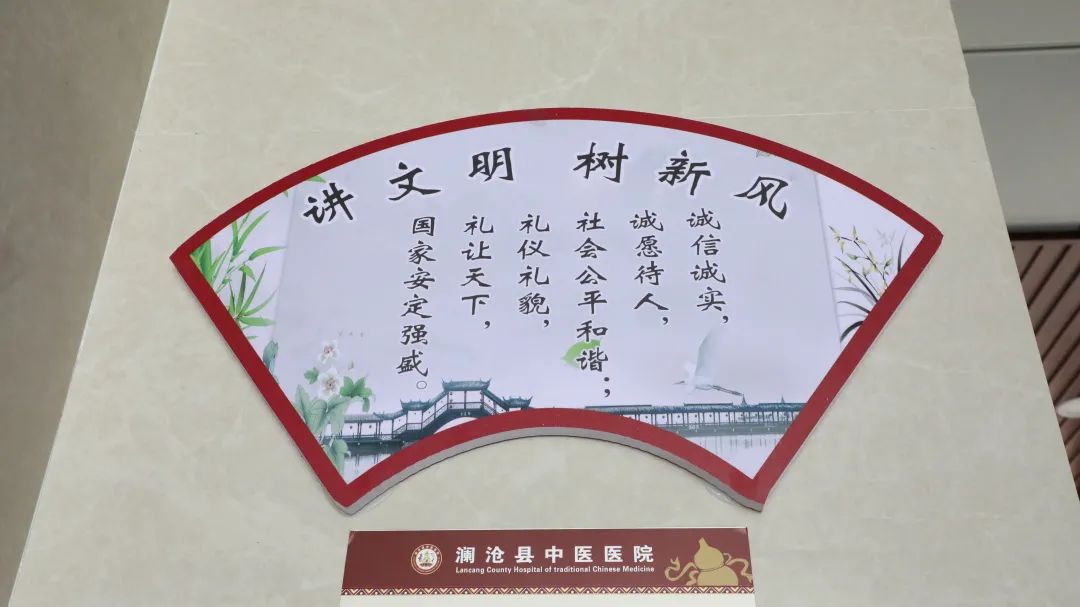 讲文明 树新风
诚信诚实，
诚愿待人，
社会公平和谐；
礼仪礼貌，
礼让天下，
国家安定强盛。
澜沧县中医医院
Lancang County Hospital of traditional Chinese Medicine